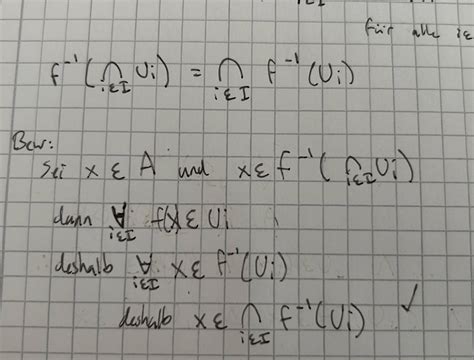 für alle iε
f⁻¹(⋂_{iεI} Ui) = ⋂_{iεI} f⁻¹(Ui)
Bew:
Sei x ε A und xε f⁻¹(⋂_{iεI} Ui)
dann ∀_{iεI} f(x) ε Ui
deshalb ∀_{iεI} xε f⁻¹(Ui)
deshalb xε ⋂_{iεI} f⁻¹(Ui) ✓